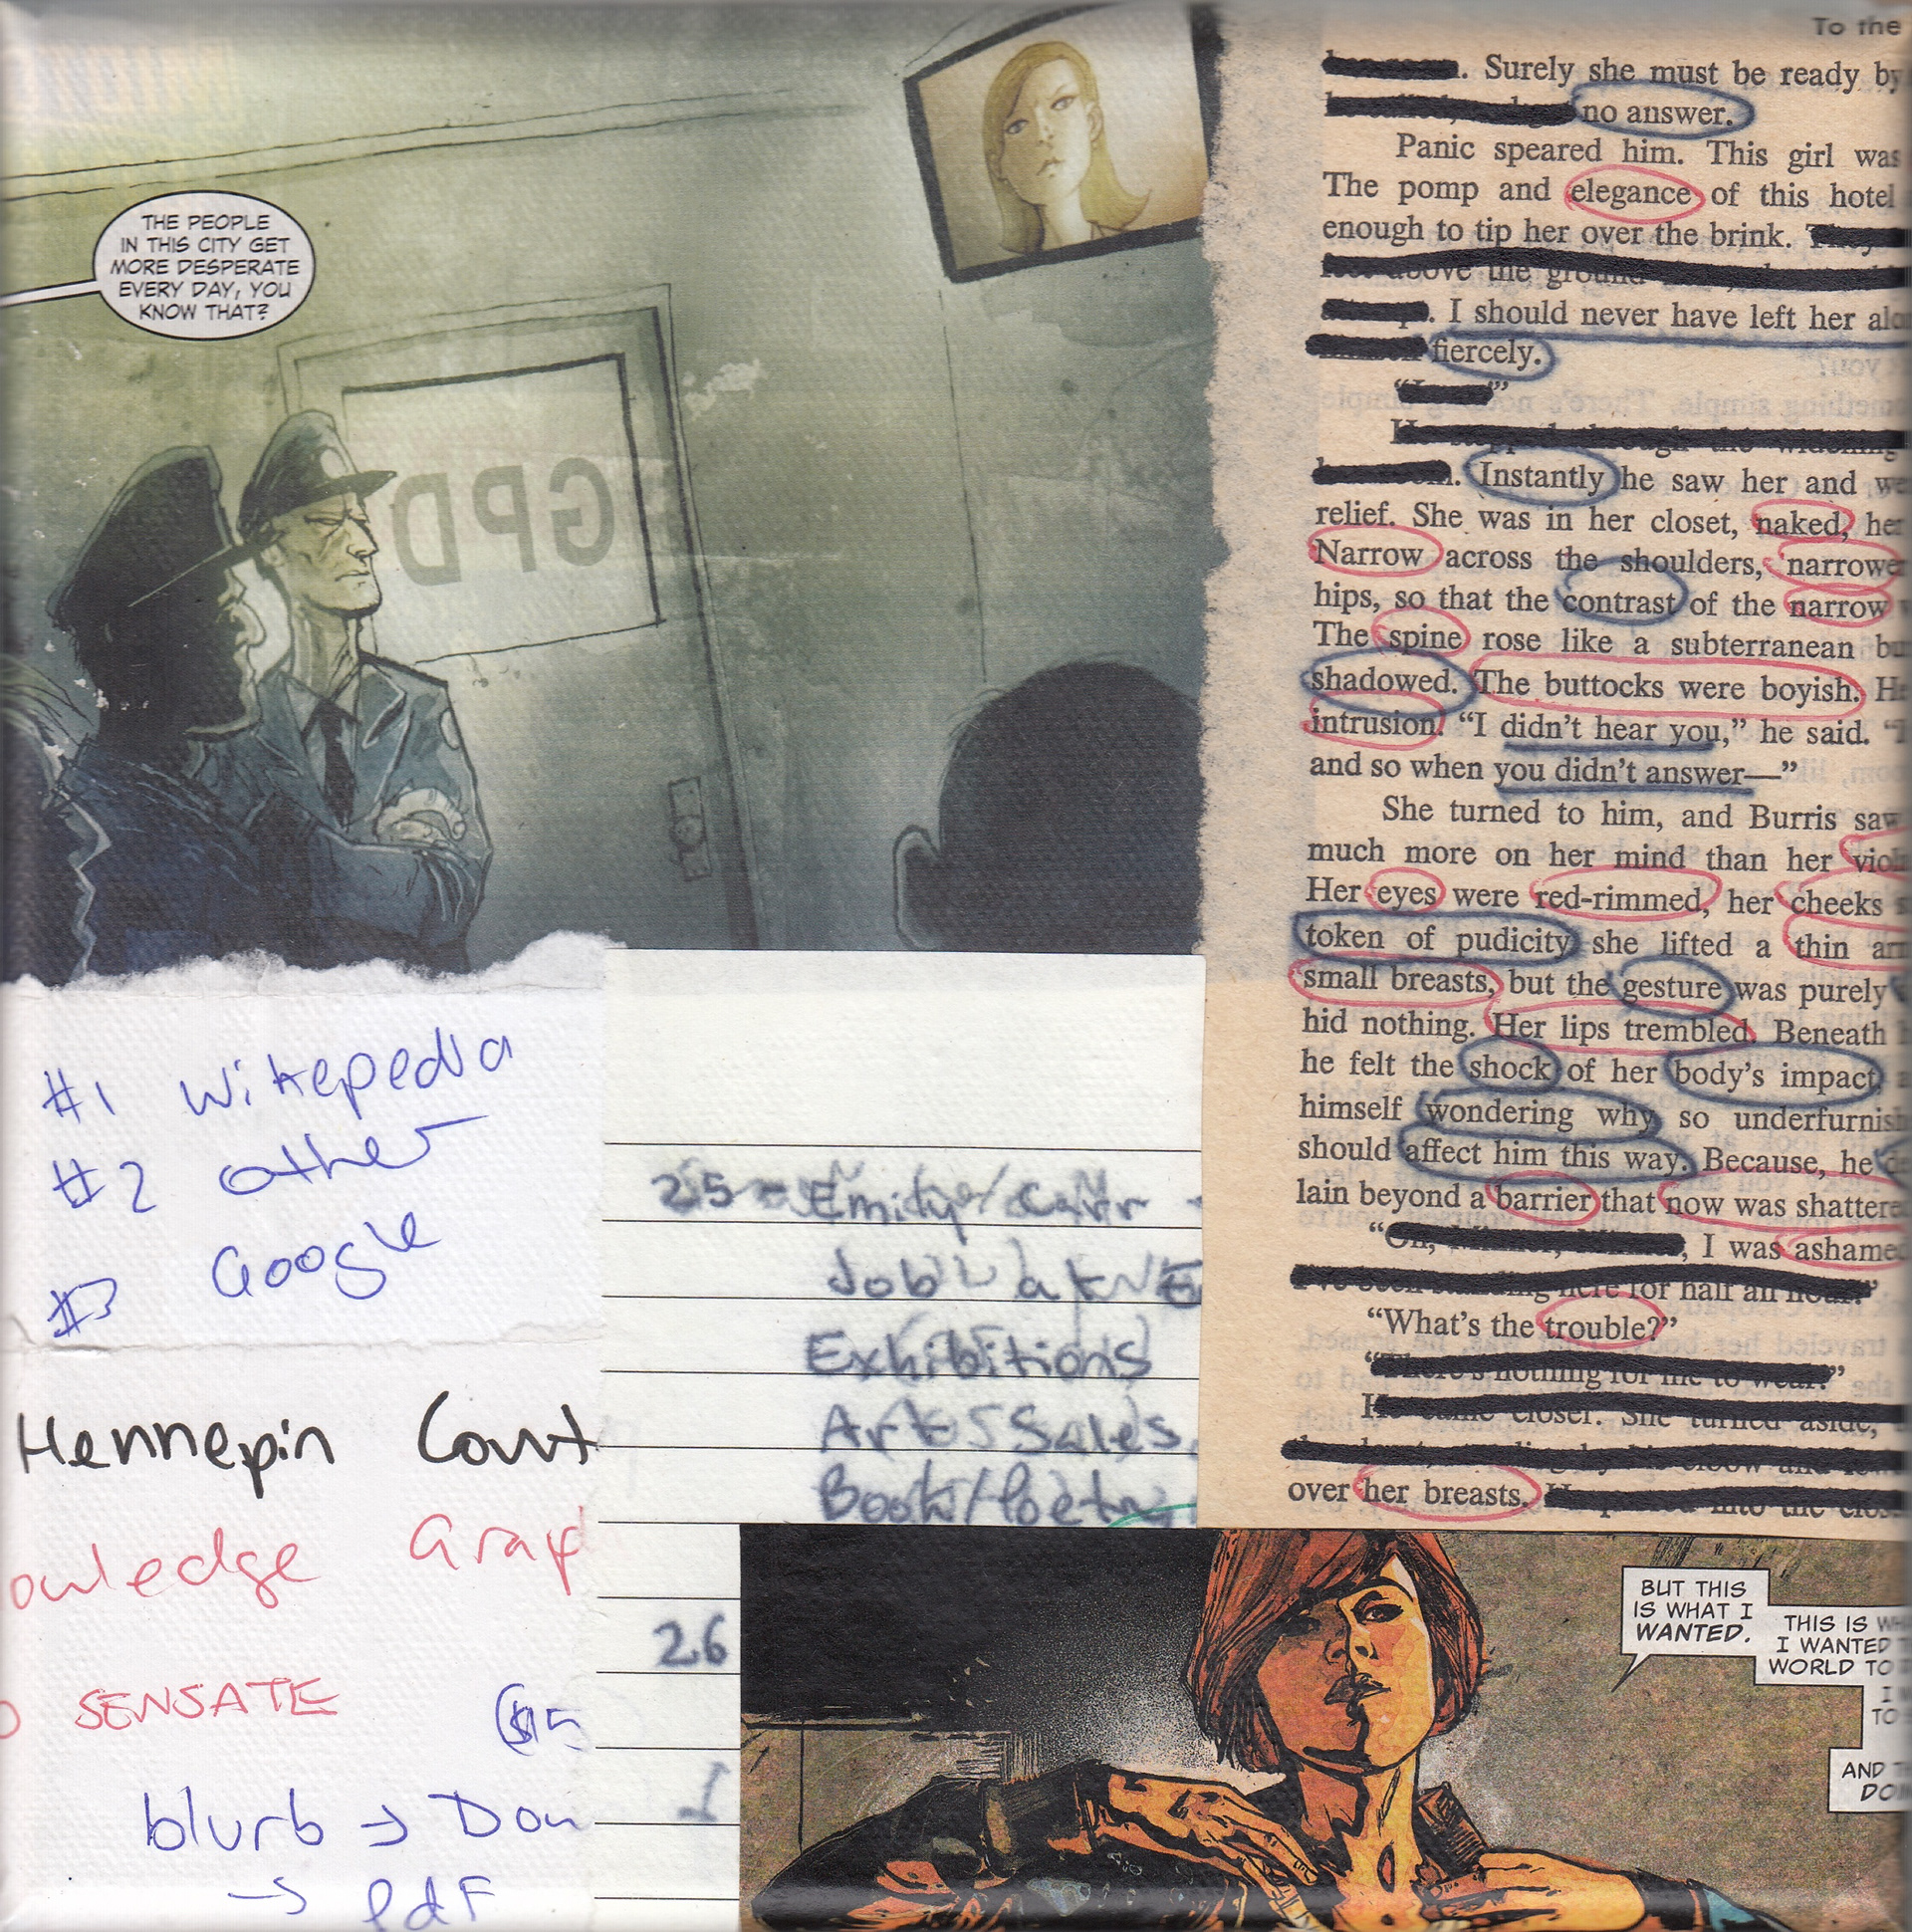 THE PEOPLE
IN THIS CITY GET
MORE DESPERATE
EVERY DAY, YOU
KNOW THAT?
GPD
To the
. Surely she must be ready by
no answer.
Panic speared him. This girl was
The pomp and elegance of this hotel
enough to tip her over the brink. They
above the ground
. I should never have left her alo
fiercely.
“ ”
He stepped through the widening
. Instantly he saw her and we
relief. She was in her closet, naked, her
Narrow across the shoulders, narrowe
hips, so that the contrast of the narrow
The spine rose like a subterranean bu
shadowed. The buttocks were boyish. H
intrusion. “I didn’t hear you,” he said. “I
and so when you didn’t answer—”
She turned to him, and Burris saw
much more on her mind than her viol
Her eyes were red-rimmed, her cheeks s
token of pudicity she lifted a thin ar
small breasts, but the gesture was purely
hid nothing. Her lips trembled. Beneath
he felt the shock of her body’s impact,
himself wondering why so underfurnish
should affect him this way. Because, he de
lain beyond a barrier that now was shattere
“Oh, , I was ashame
I’ve been standing here for half an hour.”
“What’s the trouble?”
“There’s nothing for me to wear.”
He came closer. She turned aside,
over her breasts. He into the close
#1 Wikepedia
#2 other
#3 Google
Hennepin Count
owledge Grap
SENSATE
($15
blurb → Don
→ pdF
25 - Emily Carr -
Job at E
Exhibitions
Art Sales
Book/Poetry
26
1
BUT THIS
IS WHAT I
WANTED.
THIS IS WH
I WANTED
WORLD TO
I
TO
AND
DO